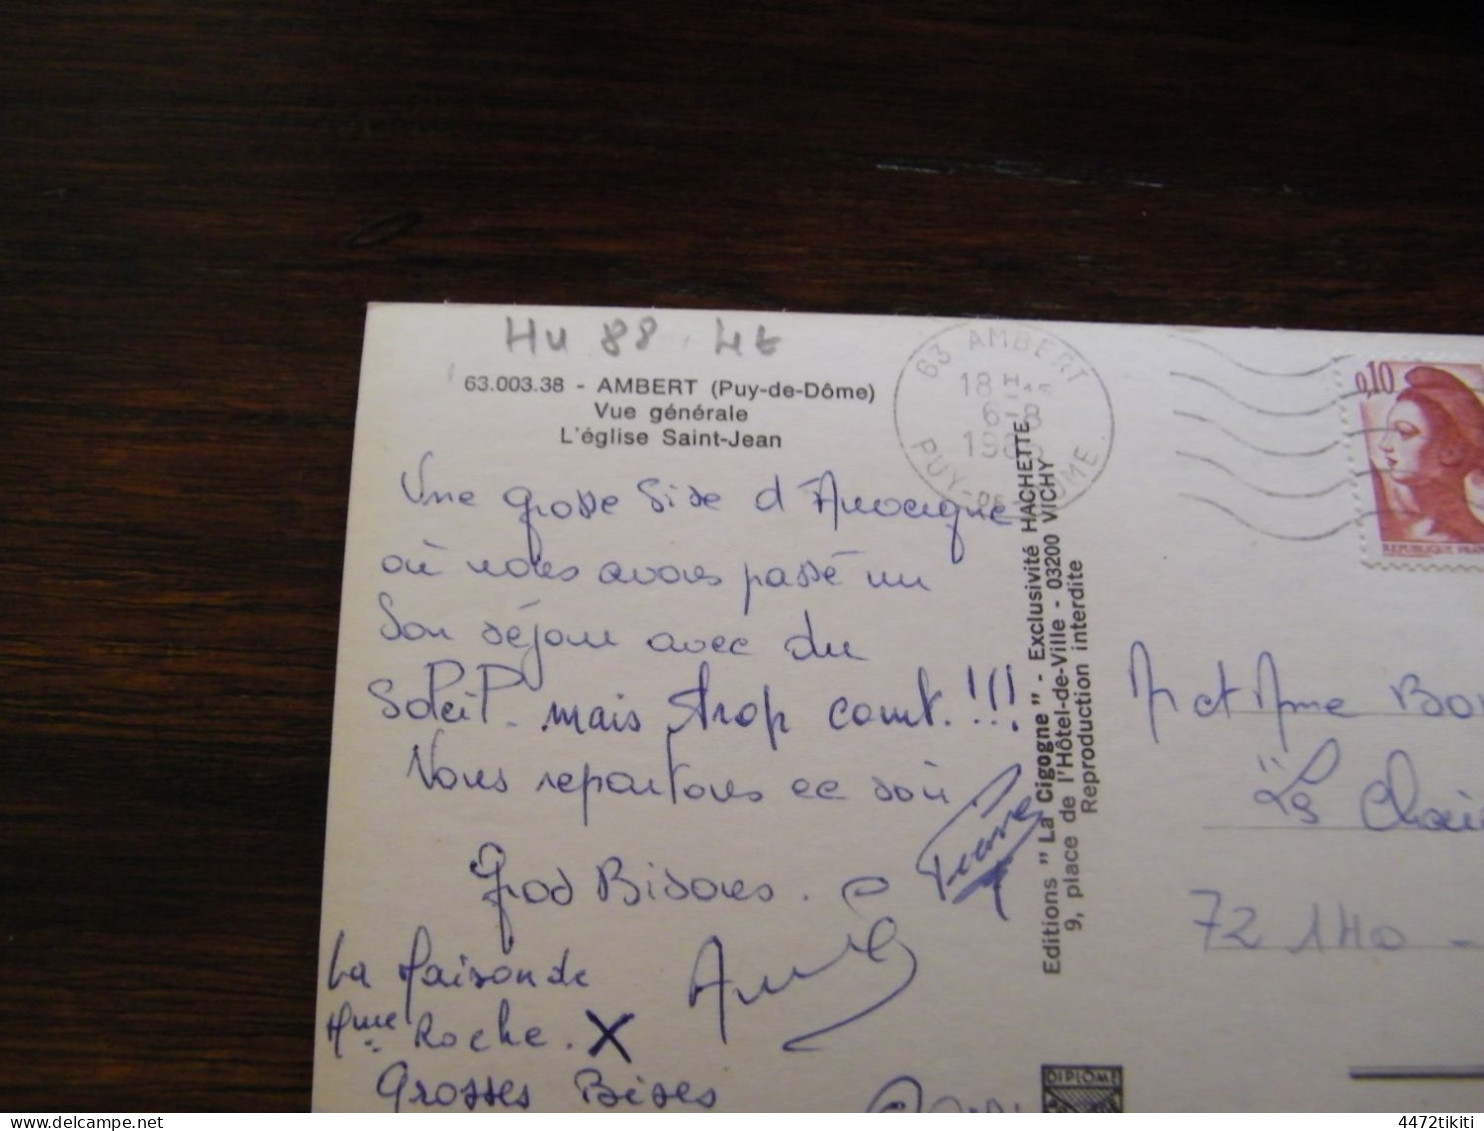 Hu 88 4t
63.003.38 - AMBERT (Puy-de-Dôme)
Vue générale
L'église Saint-Jean
63 AMBERT
18 H
6-8
PUY-DE-DOME
0,10
REPUBLIQUE FRAN
Une grosse bise d'Auvergne
où nous avons passé un
bon séjour avec du
soleil. mais trop court.!!!
Nous repartons ce soir
gros Bisous.
La Maison de
Mme Roche. X
Grosses Bises
Editions "La Cigogne" - Exclusivité HACHETTE
9, place de l'Hôtel-de-Ville - 03200 VICHY
Reproduction interdite
M et Mme
72 140 -
DIPLOME
www.delcampe.net
4472tikiti